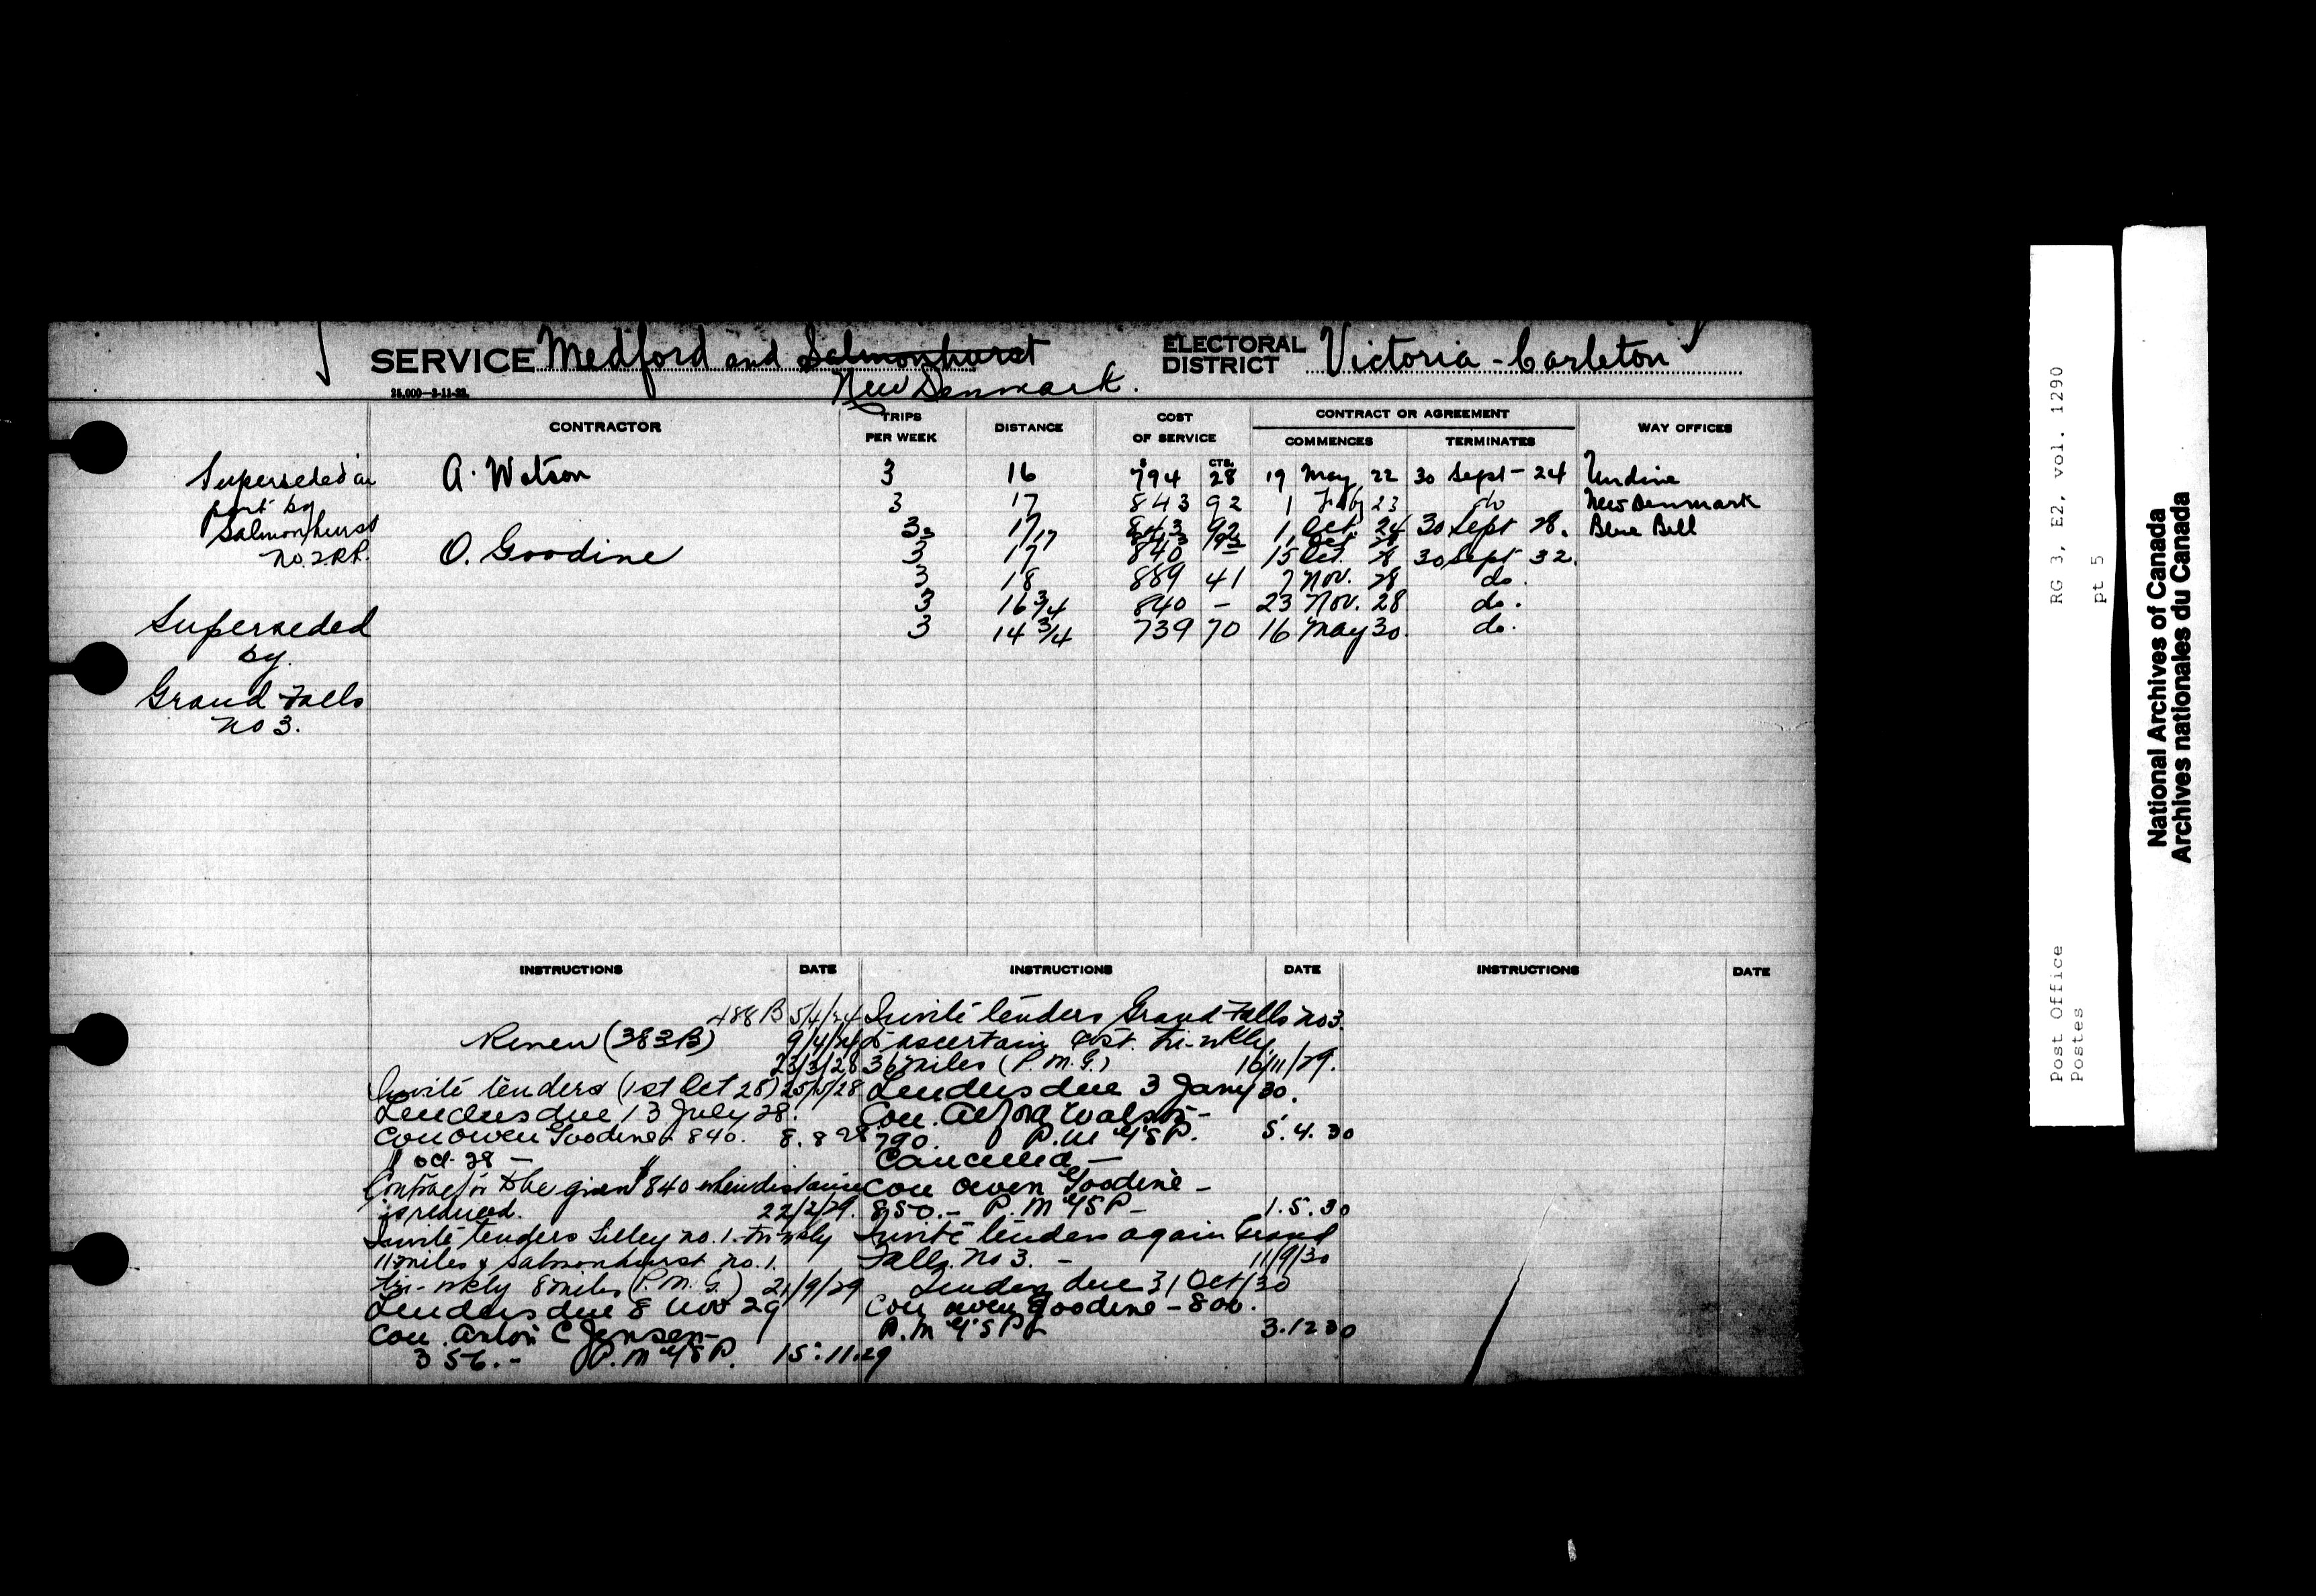 SERVICE Medford and Salmonhurst ELECTORAL DISTRICT Victoria - Carleton
New Denmark.
25,000—2-11-22.
CONTRACTOR TRIPS PER WEEK DISTANCE COST OF SERVICE CONTRACT OR AGREEMENT COMMENCES TERMINATES WAY OFFICES
$ CTS.
Superseded in
part by
Salmonhurst
No. 2 R.R.
Superseded
by
Grand Falls
No 3.
A. Watson 3 16 794 28 19 May 22 30 Sept - 24 Undine
3 17 843 92 1 Feby 23 do New Denmark
3 17 843 92 1 Oct. 24 30 Sept 28. Blue Bell
3 17 843 92 1 Oct. 28
O. Goodine 3 17 840 — 15 Oct. 28 30 Sept 32.
3 18 889 41 7 Nov. 28 do.
3 16 3/4 840 — 23 Nov. 28 do.
3 14 3/4 739 70 16 May 30. do.
INSTRUCTIONS DATE INSTRUCTIONS DATE INSTRUCTIONS DATE
488 B 5/4/24
Renew (383B) 9/4/24
23/3/28
Invite tenders (1st Oct 28) 25/5/28
Tenders due 13 July 28.
Con Owen Goodine - 840. 8. 8 28
1 Oct. 28 —
Contractor to be given $840 when distance
is reduced. 22/2/29.
Invite tenders Lilley no. 1. tri-wkly
11 miles & Salmonhurst no. 1.
tri-wkly 8 miles (P. M. G.) 21/9/29
Tenders due 8 Nov 29
Con. Anton C Jensen -
356. - P. M & S P. 15. 11. 29
Invite tenders Grand Falls no 3.
& ascertain cost. tri-wkly
36 miles (P. M. G.) 16/11/29.
Tenders due 3 Jany 30.
Con. Alford Watson -
790. P. M & S P. 5. 4. 30
Cancelled —
Con Owen Goodine -
850. - P. M & S P - 1. 5. 30
Invite tenders again Grand
Falls. No 3. - 11/9/30
Tenders due 31 Oct/30
Con Owen Goodine - 800.
P. M & S P - 3. 12 30
Post Office RG 3, E2, vol. 1290
Postes pt 5
National Archives of Canada
Archives nationales du Canada